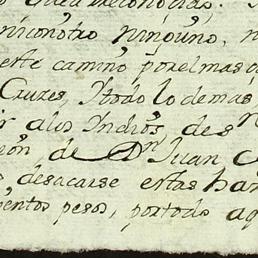 reconocido.
ni con otro ninguno, n
este camino por el mas
Cruzes, Y todo lo demas,
ir a los Yndios, des
de Dn Juan
desacarse estas han
entos pesos, por todo aq